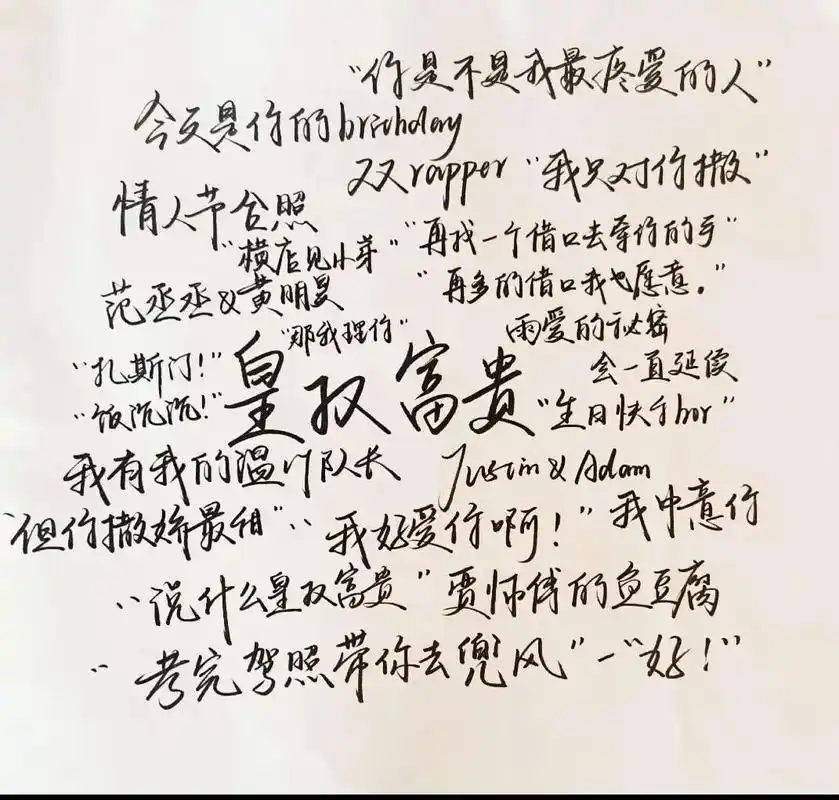 “你是不是我最疼爱的人”
今天是你的brithday
双rapper “我只对你撒”
情人节合照
“横店见小芽” “再找一个借口去牵你的手”
范丞丞&黄明昊 “再多的借口我也愿意。”
“那我理你” 雨爱的秘密
“扎斯门！” 皇权富贵 会一直延续
“饭沉沉！” “生日快乐bor”
我有我的温州队长 Justin & Adam
“但你撒娇最甜” “我好爱你啊！” 我中意你
“说什么皇权富贵” 贾师傅的鱼豆腐
“考完驾照带你去兜风”—“好！”